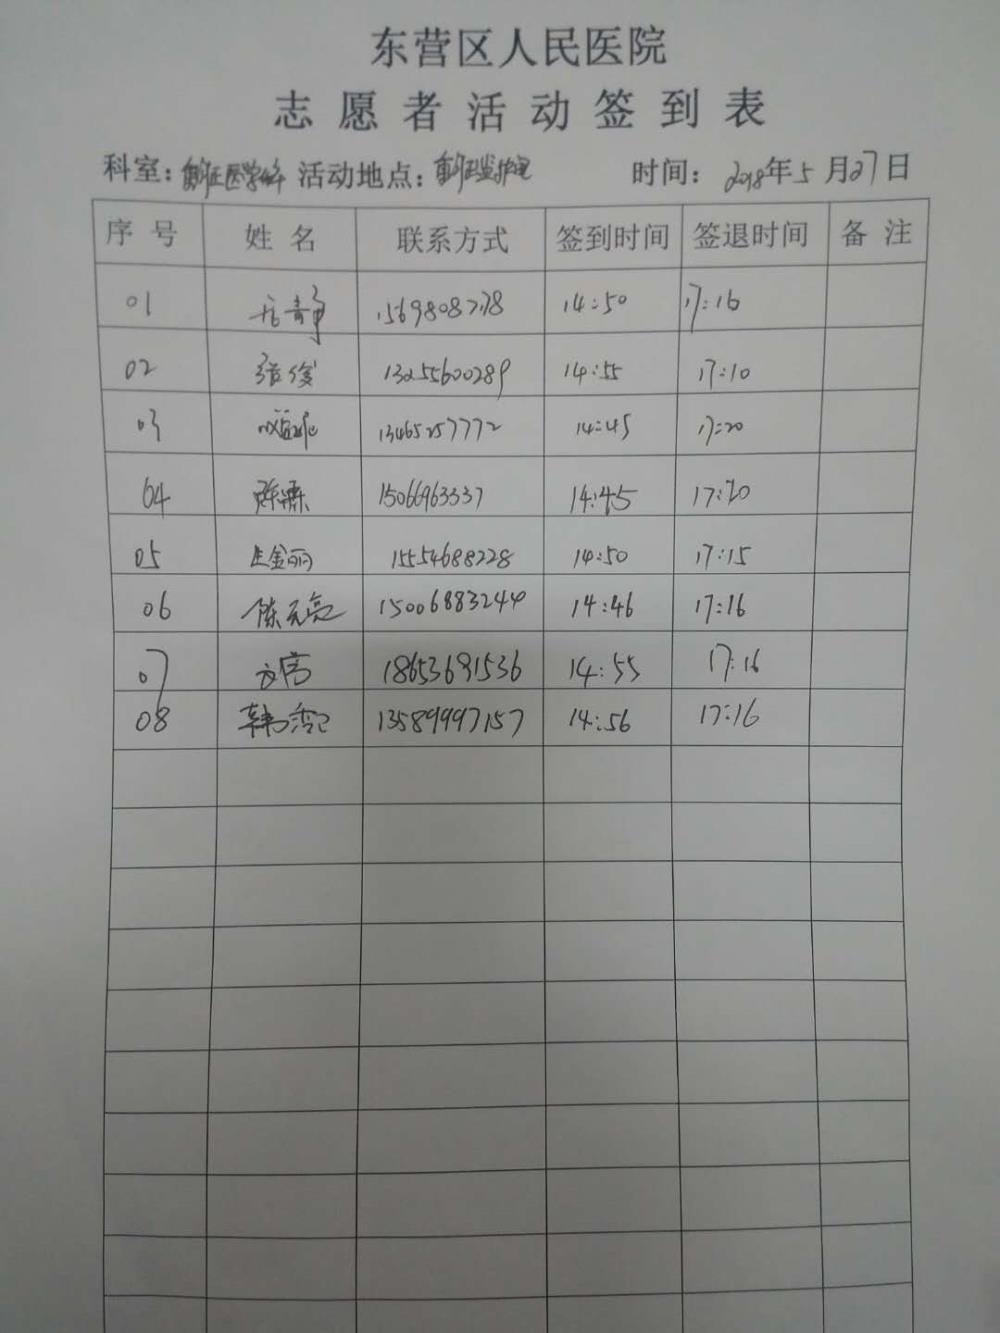 东营区人民医院
志愿者活动签到表
科室：重症医学科 活动地点：重症监护室 时间：2018年5月27日
序号 姓名 联系方式 签到时间 签退时间 备注
01 14:50 17:16
02 张俊 13255600289 14:55 17:10
03 13465257772 14:45 17:20
04 15066963337 14:45 17:20
05 王金丽 15554688228 14:50 17:15
06 陈元亮 15006883244 14:46 17:16
07 18653691536 14:55 17:16
08 13589997157 14:56 17:16